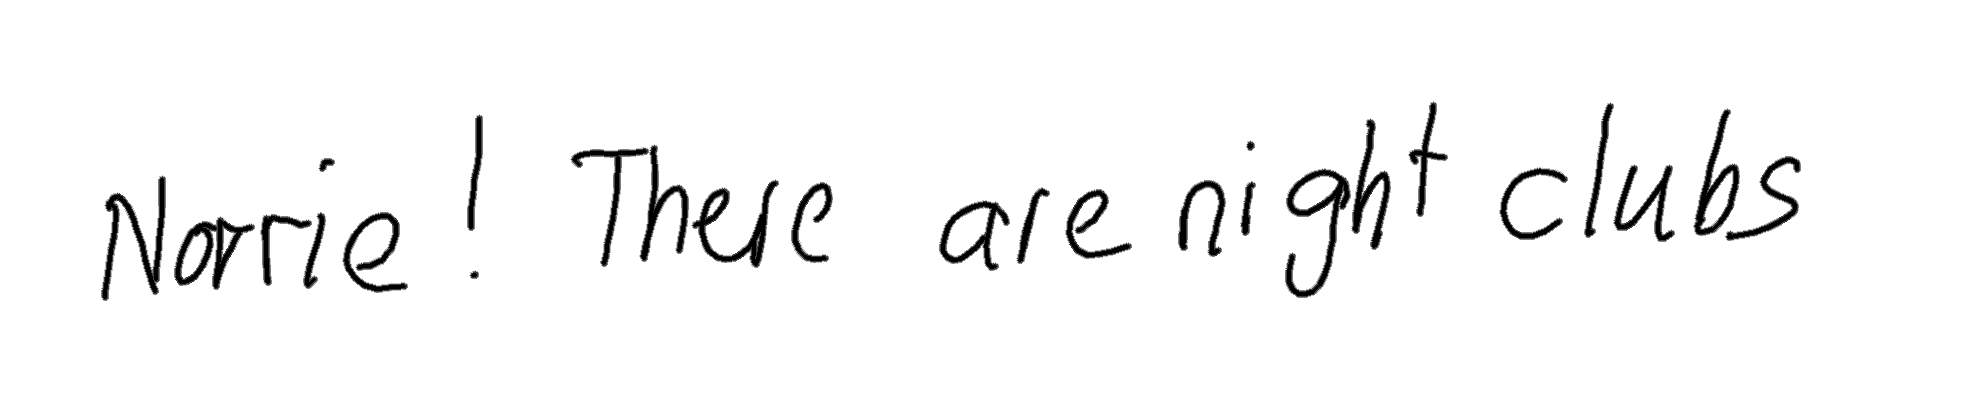 Norrie! There are night clubs